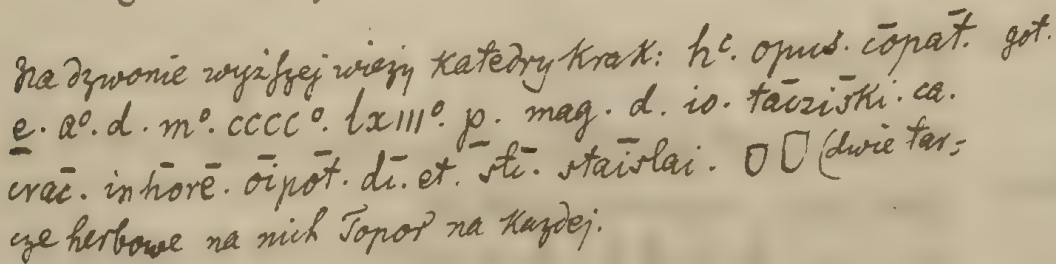 Na dzwonie wyższej wieży Katedry Krak: hᶜ. opus. cōpat̄. got.
e̱. aº. d. mº. ccccº. lxIIIº. p̱. mag. d. io. tāczis̄ki. ca.
crac̄. in hōrē. ōipōt. dī. et. st̄ī. staīslai. (dwie tar=
cze herbowe na nich Topor na każdej.